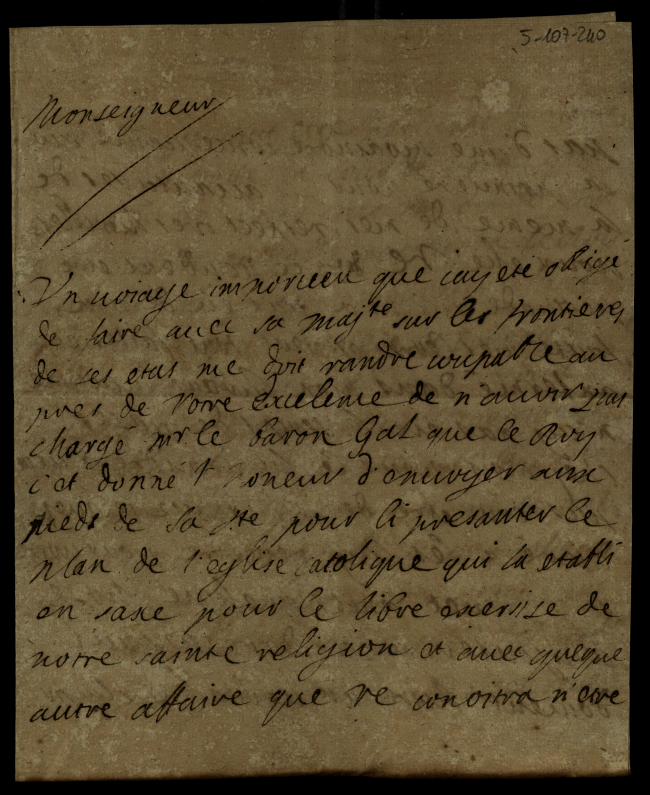 5-107-240
Monseigneur
Un voiage imporveu que iay eté obligé
de faire avec sa majte sur les frontieres
de ses etas me doit randre coupable au
pres de votre excelence de n'auoir pas
chargé mr le baron Gal que le Roy
c'et donné l'honeur d'envoyer aux
pieds de sa ste pour li presanter le
plan de l'eglise catolique qui la etabli
en saxe pour le libre exersise de
notre sainte religion et avec quegue
autre affaire que re conoitra n'etre